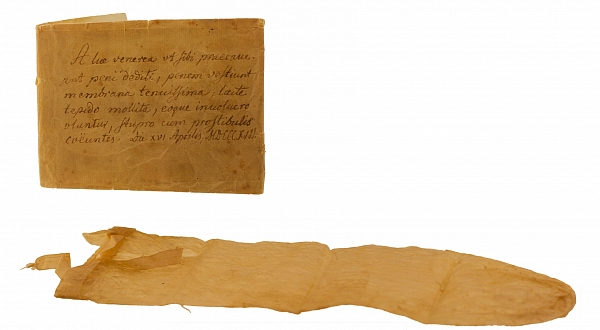 A lue venerea vt sibi praecaue-
ant peni dediti, penem vestiunt
membrana tenuissima, lacte
tepido mollita, eoque inuolucro
vtuntur, stupro cum prostibulis
coëuntes. Die XVI Aprilis MDCCCXIII.